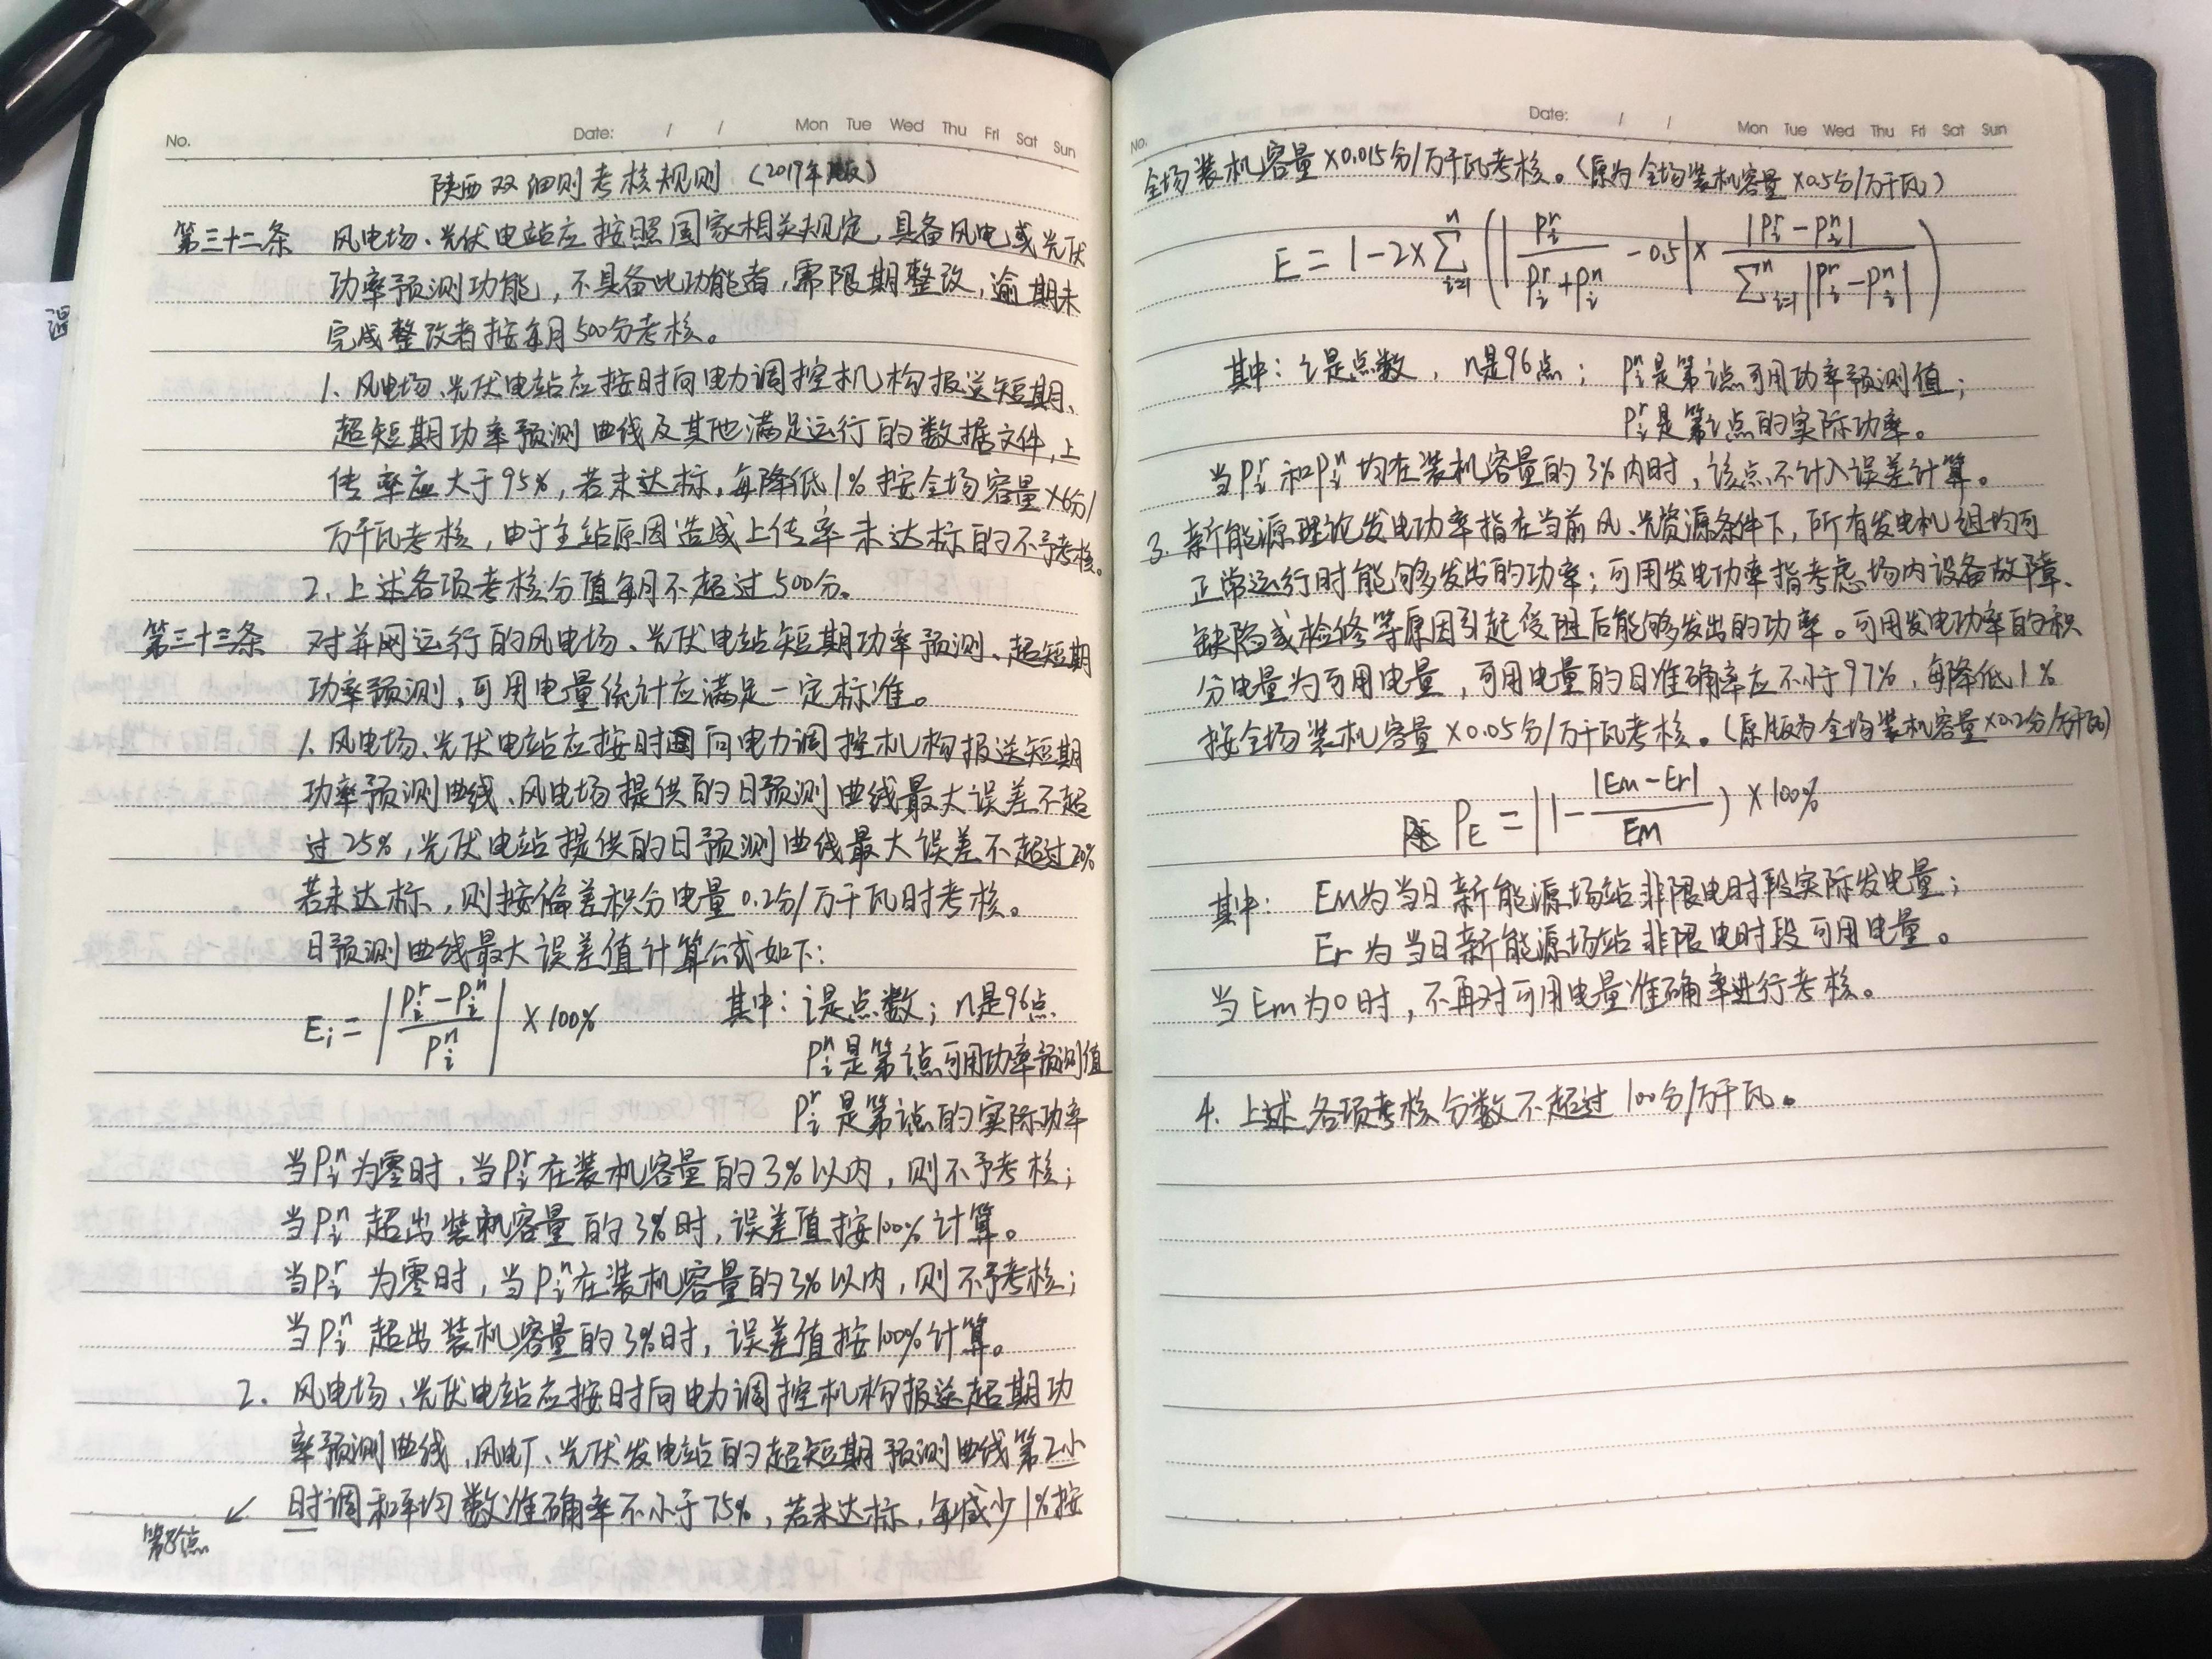 No.
Date: / / Mon Tue Wed Thu Fri Sat Sun
陕西双细则考核规则（2019年版）
第三十二条 风电场、光伏电站应按照国家相关规定，具备风电或光伏
功率预测功能，不具备此功能者，需限期整改，逾期未
完成整改者按每月500分考核。
1. 风电场、光伏电站应按时向电力调控机构报送短期、
超短期功率预测曲线及其他满足运行的数据文件，上
传率应大于95%，若未达标，每降低1%按全场容量×6分/
万千瓦考核，由于主站原因造成上传率未达标的不予考核。
2. 上述各项考核分值每月不超过500分。
第三十三条 对并网运行的风电场、光伏电站短期功率预测、超短期
功率预测，可用电量统计应满足一定标准。
1. 风电场、光伏电站应按时向电力调控机构报送短期
功率预测曲线、风电场提供的日预测曲线最大误差不超
过25%，光伏电站提供的日预测曲线最大误差不超过20%
若未达标，则按偏差积分电量0.2分/万千瓦时考核。
日预测曲线最大误差值计算公式如下：
Ei = |(Pir - Pin) / Pin| × 100% 其中：i是点数；n是96点
Pin是第i点可用功率预测值
Pir是第i点的实际功率
当Pin为零时，当Pir在装机容量的3%以内，则不予考核；
当Pin超出装机容量的3%时，误差值按100%计算。
当Pir为零时，当Pin在装机容量的3%以内，则不予考核；
当Pin超出装机容量的3%时，误差值按100%计算。
2. 风电场、光伏电站应按时向电力调控机构报送超期功
率预测曲线，风电厂、光伏发电站的超短期预测曲线第2小
时调和平均数准确率不小于75%，若未达标，每减少1%按
第8点
No.
Date: / / Mon Tue Wed Thu Fri Sat Sun
全场装机容量×0.015分/万千瓦考核。（原为全场装机容量×0.5分/万千瓦）
E = 1 - 2 × Σ(i=1, n) (|Pir / (Pir + Pin) - 0.5| × |Pir - Pin| / Σ(i=1, n)|Pir - Pin|)
其中：i是点数，n是96点；Pin是第i点可用功率预测值；
Pir是第i点的实际功率。
当Pir和Pin均在装机容量的3%内时，该点不计入误差计算。
3. 新能源理论发电功率指在当前风、光资源条件下，所有发电机组均可
正常运行时能够发出的功率；可用发电功率指考虑场内设备故障、
缺陷或检修等原因引起受阻后能够发出的功率。可用发电功率的积
分电量为可用电量，可用电量的日准确率应不小于97%，每降低1%
按全场装机容量×0.05分/万千瓦考核。（原版为全场装机容量×0.2分/万千瓦）
PE = |1 - |Em - Er| / EM) × 100%
其中：Em为当日新能源场站非限电时段实际发电量；
Er为当日新能源场站非限电时段可用电量。
当Em为0时，不再对可用电量准确率进行考核。
4. 上述各项考核分数不超过100分/万千瓦。